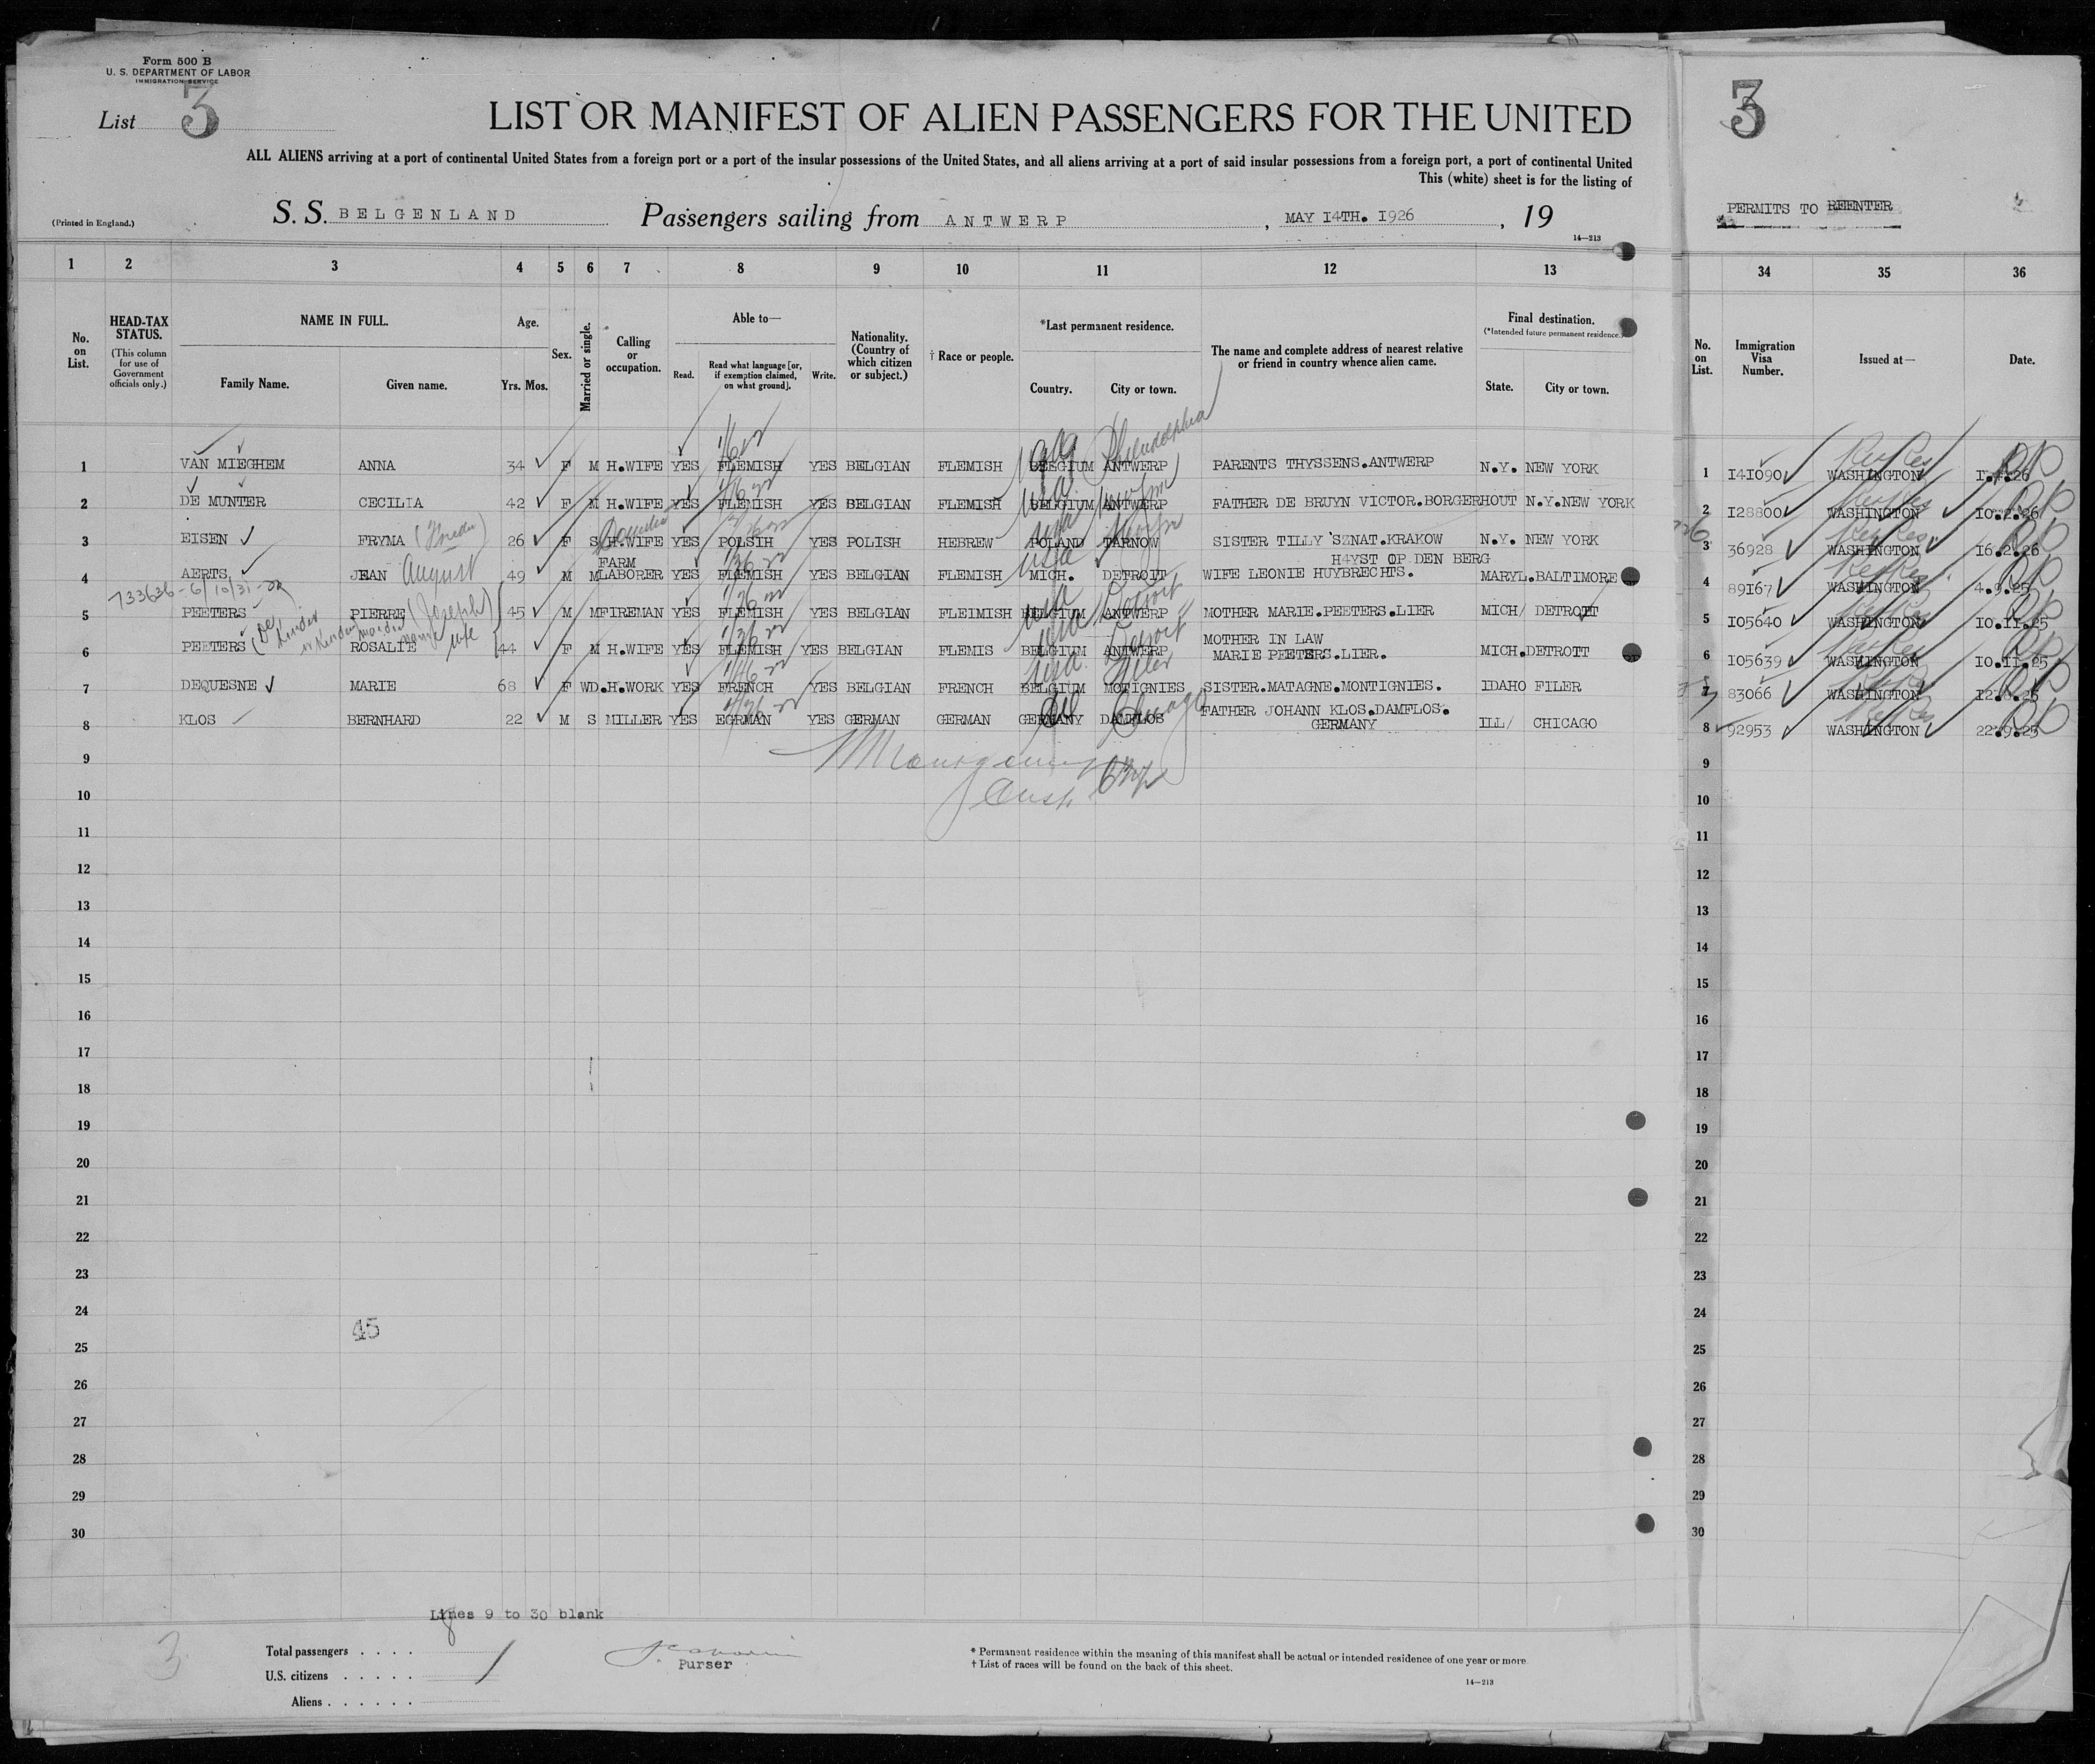 Form 500 B
U. S. DEPARTMENT OF LABOR
IMMIGRATION SERVICE
List 3
LIST OR MANIFEST OF ALIEN PASSENGERS FOR THE UNITED
ALL ALIENS arriving at a port of continental United States from a foreign port or a port of the insular possessions of the United States, and all aliens arriving at a port of said insular possessions from a foreign port, a port of continental United
This (white) sheet is for the listing of
(Printed in England.)
S. S. BELGENLAND Passengers sailing from ANTWERP, MAY I4TH. I926, 19
14—213
3
PERMITS TO REENTER
1 2 3 4 5 6 7 8 9 10 11 12 13 34 35 36
No. on List.
HEAD-TAX STATUS.
(This column for use of Government officials only.)
NAME IN FULL.
Family Name. Given name.
Age.
Yrs. Mos.
Sex.
Married or single.
Calling or occupation.
Able to—
Read. Read what language [or, if exemption claimed, on what ground]. Write.
Nationality. (Country of which citizen or subject.)
† Race or people.
*Last permanent residence.
Country. City or town.
The name and complete address of nearest relative or friend in country whence alien came.
Final destination.
(*Intended future permanent residence.)
State. City or town.
No. on List.
Immigration Visa Number.
Issued at—
Date.
1 VAN MIEGHEM ANNA 34 F M H.WIFE YES FLEMISH YES BELGIAN FLEMISH BELGIUM ANTWERP Philadelphia PARENTS THYSSENS.ANTWERP N.Y. NEW YORK 1 I4I090 WASHINGTON
2 DE MUNTER CECILIA 42 F M H.WIFE YES FLEMISH YES BELGIAN FLEMISH BELGIUM ANTWERP FATHER DE BRUYN VICTOR.BORGERHOUT N.Y.NEW YORK 2 I28800 WASHINGTON I0.2.26
3 EISEN FRYMA 26 F S H.WIFE YES POLSIH YES POLISH HEBREW POLAND TARNOW SISTER TILLY SZNAT.KRAKOW N.Y. NEW YORK 3 36928 WASHINGTON I6.2.26
FARM H4YST OP DEN BERG
4 AERTS JEAN August 49 M M LABORER YES FLEMISH YES BELGIAN FLEMISH MICH. DETROIT WIFE LEONIE HUYBRECHTS. MARYL.BALTIMORE 4 89I67 WASHINGTON 4.9.25
733636-6/10/31
5 PEETERS PIERRE (Joseph) 45 M M FIREMAN YES FLEMISH YES BELGIAN FLEIMISH BELGIUM ANTWERP Detroit MOTHER MARIE.PEETERS.LIER MICH/ DETROIT 5 I05640 WASHINGTON I0.II.25
MOTHER IN LAW
6 PEETERS ROSALIE maiden name wife 44 F M H.WIFE YES FLEMISH YES BELGIAN FLEMIS BELGIUM ANTWERP Detroit MARIE PEETERS.LIER. MICH.DETROIT 6 I05639 WASHINGTON I0.II.25
7 DEQUESNE MARIE 68 F WD. H.WORK YES FRENCH YES BELGIAN FRENCH BELGIUM MOTIGNIES Filer SISTER.MATAGNE.MONTIGNIES. IDAHO FILER 7 83066 WASHINGTON
8 KLOS BERNHARD 22 M S MILLER YES EGRMAN YES GERMAN GERMAN GERMANY DAMFLOS Chicago FATHER JOHANN KLOS.DAMFLOS. GERMANY ILL/ CHICAGO 8 92953 WASHINGTON 22.9.25
9 9
10 10
11 11
12 12
13 13
14 14
15 15
16 16
17 17
18 18
19 19
20 20
21 21
22 22
23 23
24 24
45
25 25
26 26
27 27
28 28
29 29
30 30
Lines 9 to 30 blank
3
Total passengers . . . . 8
U.S. citizens . . . . .
Aliens . . . . . .
Purser
* Permanent residence within the meaning of this manifest shall be actual or intended residence of one year or more
† List of races will be found on the back of this sheet.
14—213